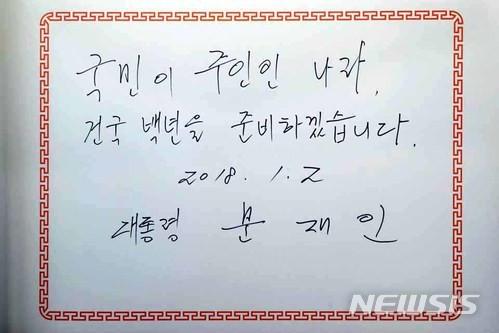 국민이 주인인 나라,
건국 백년을 준비하겠습니다.
2018. 1. 2
대통령 문재인
NEWSIS